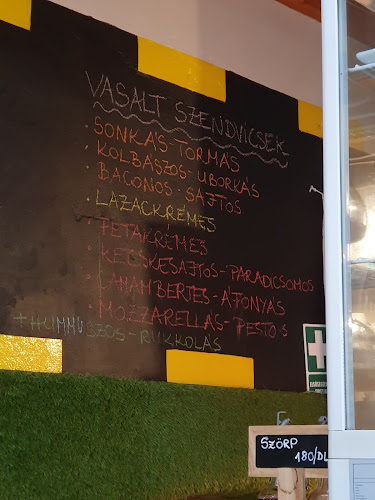 VASALT SZENDVICSEK
· SONKÁS-TORMÁS
· KOLBÁSZOS-UBORKÁS
· BACONOS-SAJTOS
· LAZACKRÉMES
· FETAKRÉMES
· KECSKESAJTOS-PARADICSOMOS
· CAMAMBERTES-ÁFONYÁS
· MOZZARELLÁS-PESTOS
+ HUMMUSZOS-RUKKOLÁS
SZÖRP
180/DL